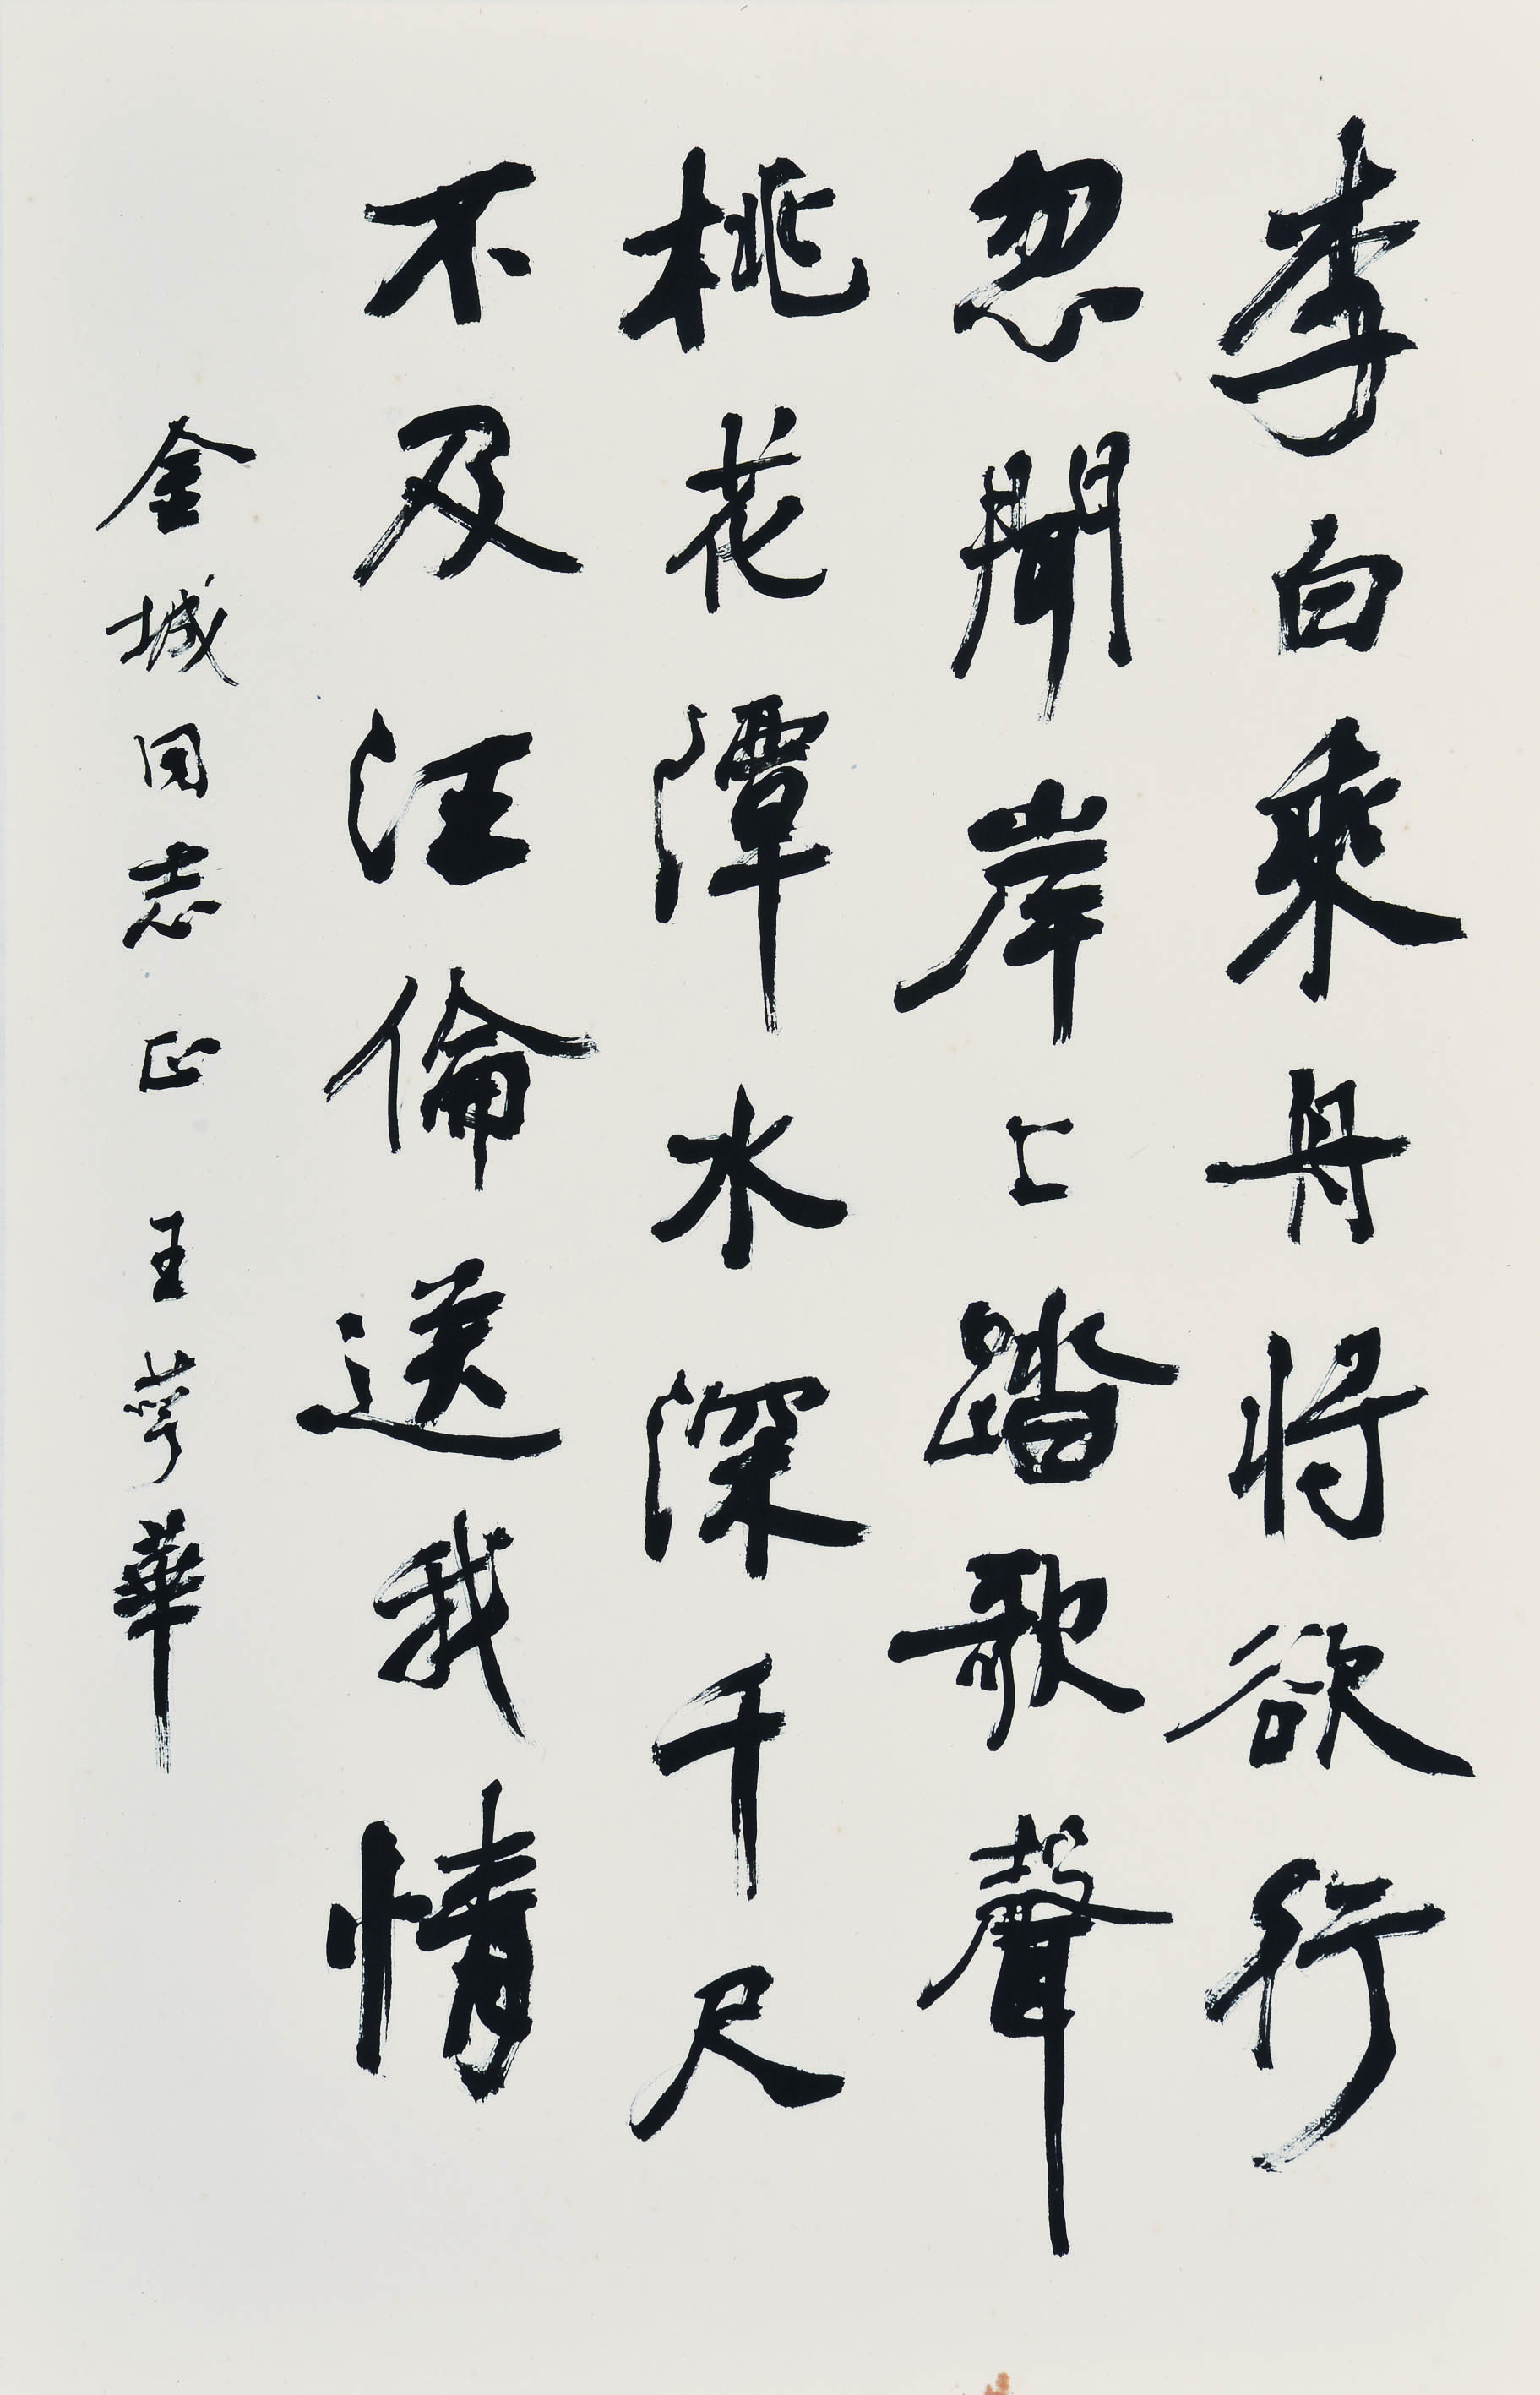 李白乘舟将欲行
忽聞岸上踏歌聲
桃花潭水深千尺
不及汪倫送我情
金城同志正 王蘧華